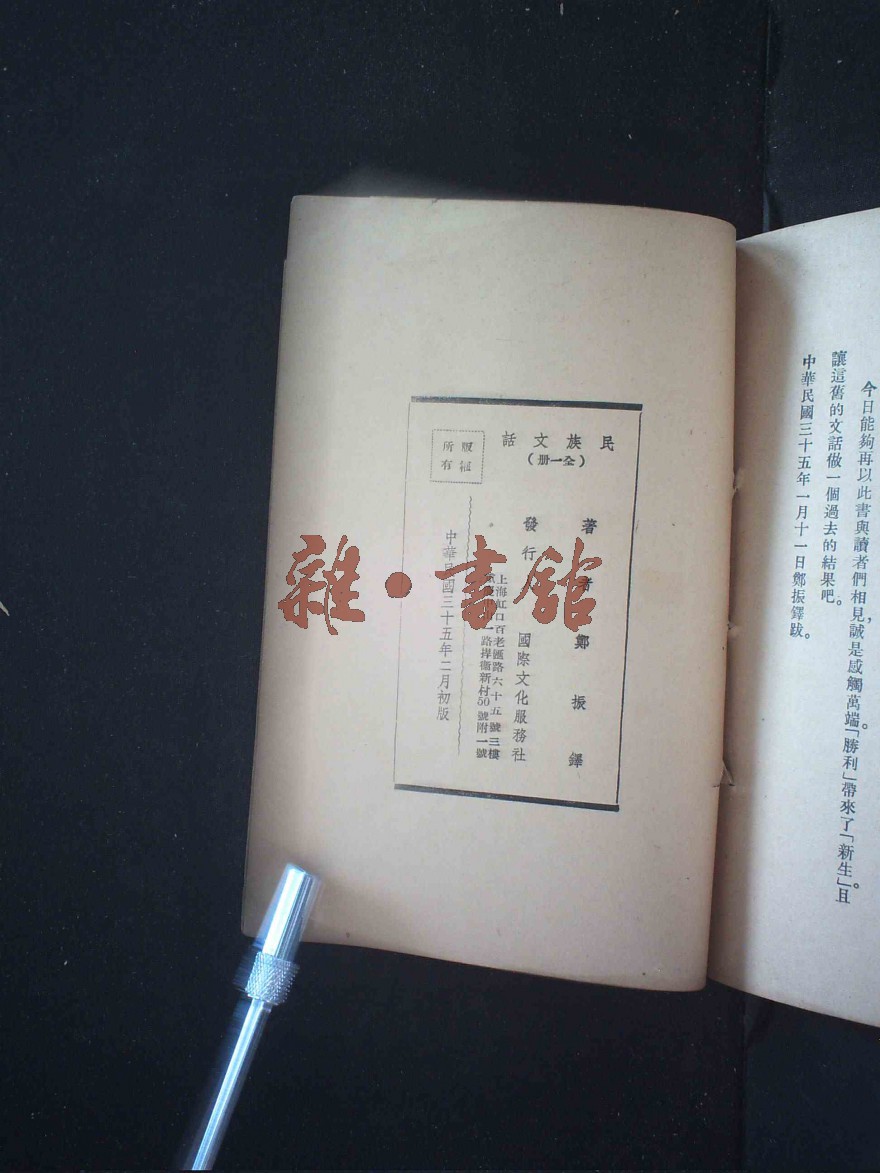 今日能夠再以此書與讀者們相見，誠是感觸萬端。「勝利」帶來了「新生」。且
讓這舊的文話做一個過去的結果吧。
中華民國三十五年一月十一日鄭振鐸跋。
民族文話
（全一册）
版權
所有
著者 鄭振鐸
發行 國際文化服務社
上海虹口百老匯路六十五號三樓
路捍衞新村50號附一號
中華民國三十五年二月初版
雜·書館